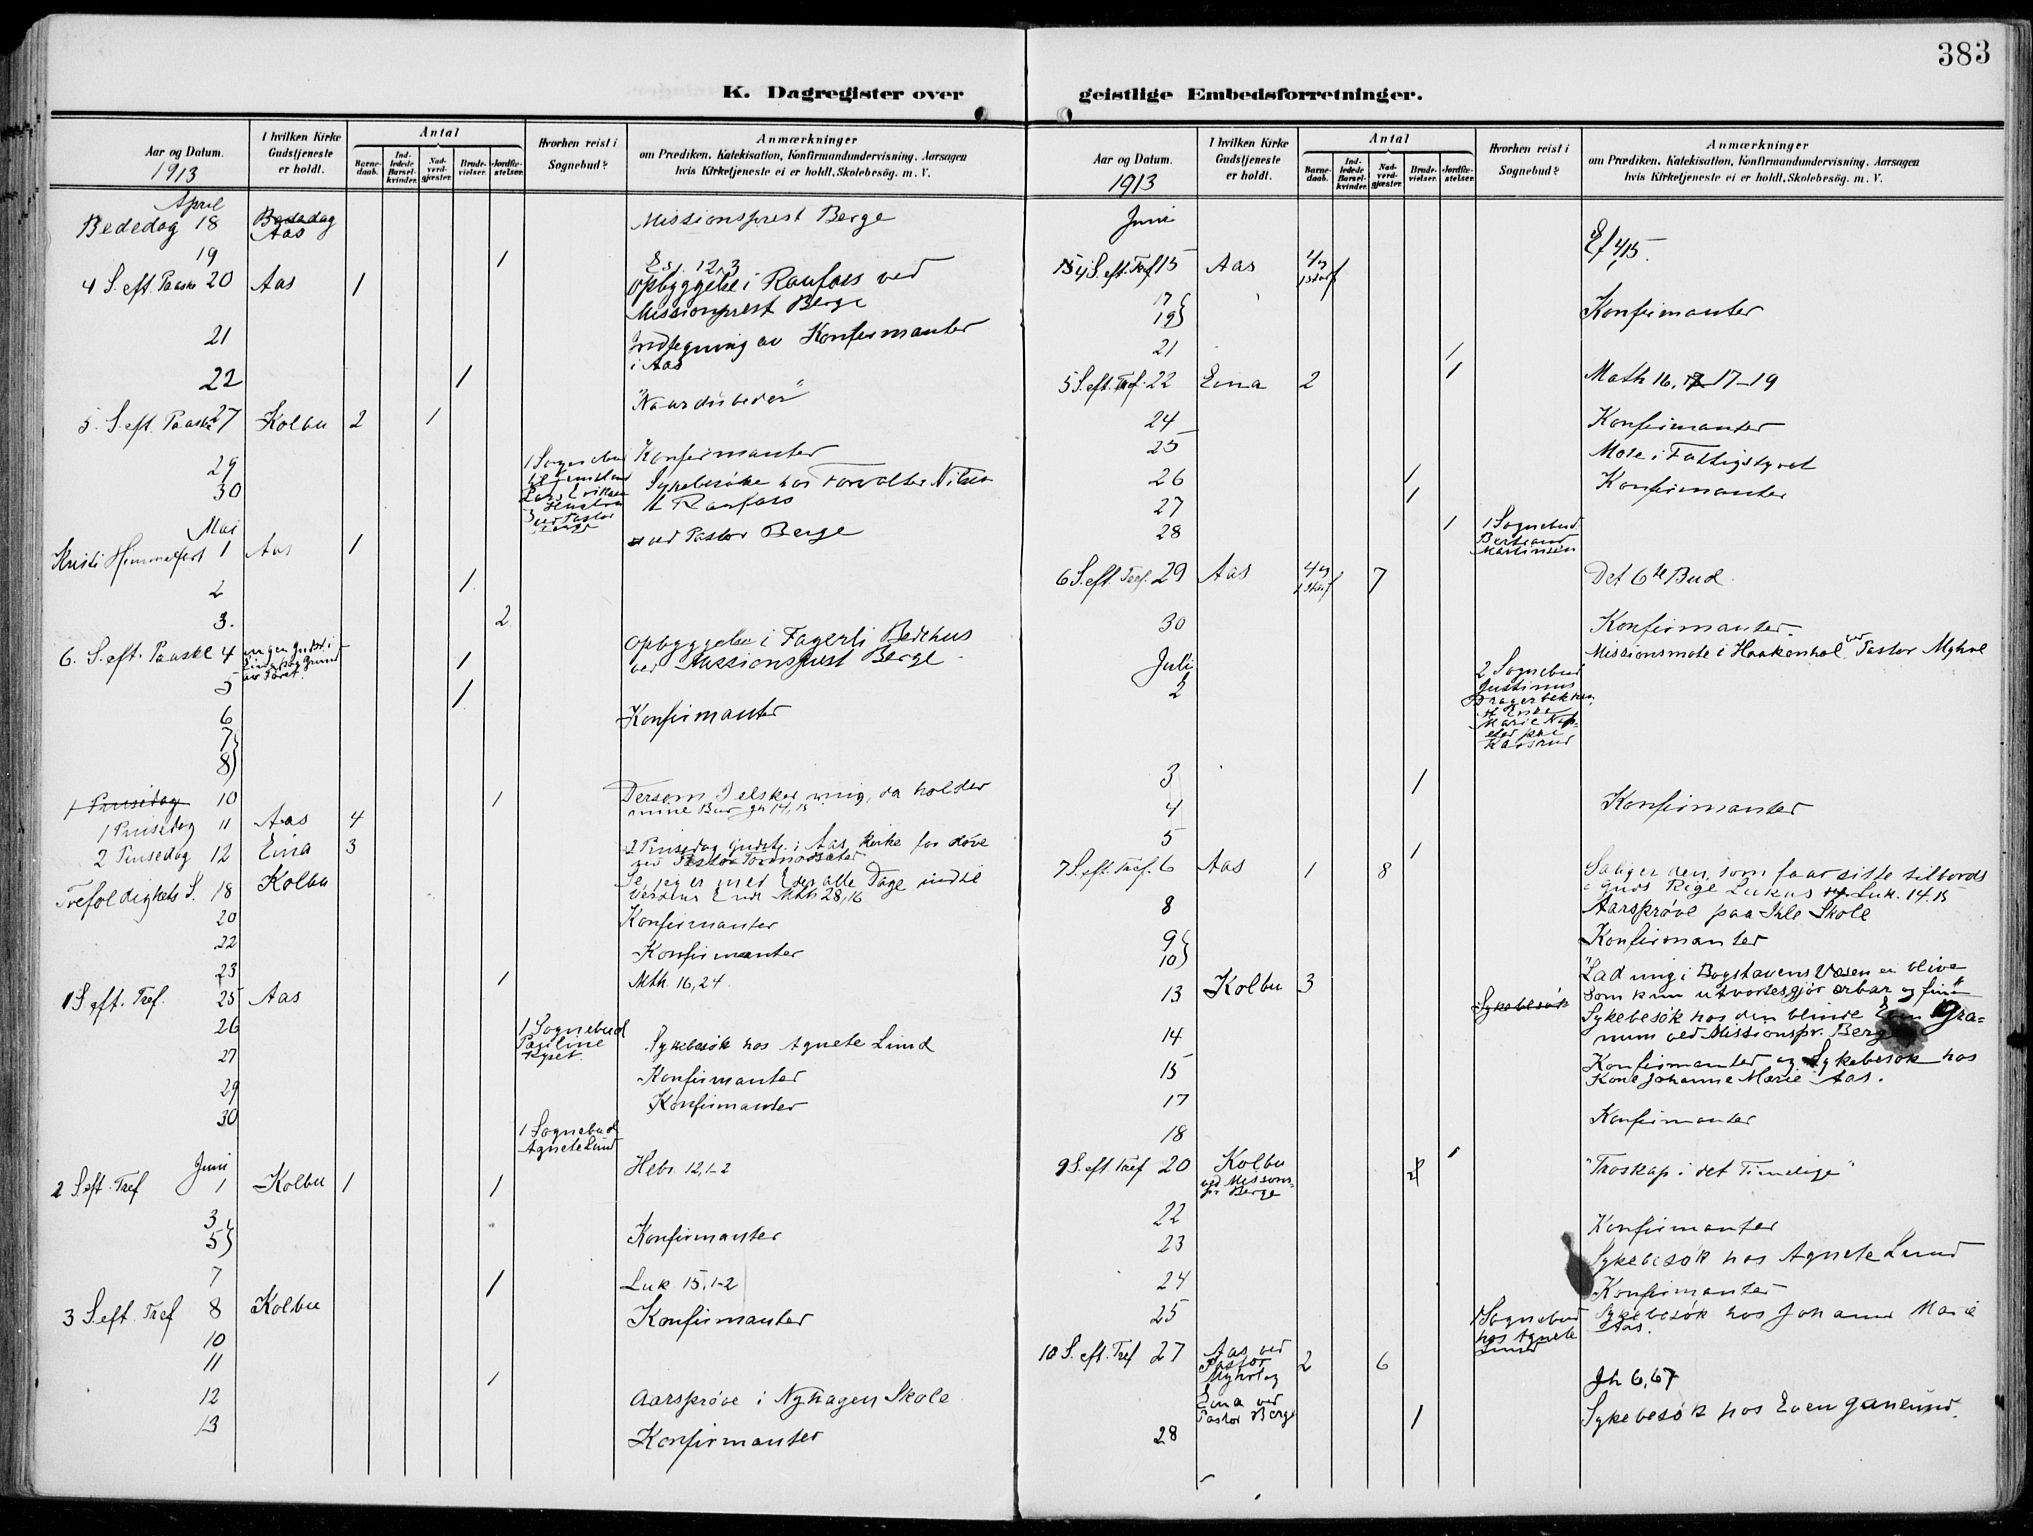 383
K. Dagregister over
Aar og Datum.
1913
I hvilken Kirke Gudstjeneste er holdt.
Antal
Barnedaab.
Indledede Barselkvinder.
Nadverdgjæster.
Brudevielser.
Jordfæstelser.
Hvorhen reist i Sognebud?
Anmærkninger
om Prædiken, Katekisation, Konfirmandundervisning, Aarsagen
hvis Kirketjeneste ei er holdt, Skolebesøg. m. V.
April
Bededag 18 Aas Missionsprest Berge
19 1
4 S. eft. Paaske 20 Aas 1 Es. 12,3
Opbyggelse i Raufoss ved
Missionsprest Berge
21 Indtegning av Konfirmanter
i Aas
22 1
5. S. eft. Paaske 27 Kolbu 2 1 "Naar du beder"
29 1 Sognebud Konfirmanter
30 Sykebesøke hos Forvalter Nilsen
Raufoss
Mai
Kristi Himmelfart 1 Aas 1 ved Pastor Berge
2 1
3. 2
6. S. eft. Paaske 4 ingen Gudstj. i
Eina paa Grund
av Føret. 1 Opbyggelse i Fagerli Bedehus
ved Missionsprest Berge
5 1
6 Konfirmanter
7
8
1 Pinsedag 10 1 Dersom I elsker mig, da holder
mine Bud Jh 14,15
1 Pinsedag 11 Aas 4
2 Pinsedag 12 Eina 3 2 Pinsedag Gudstj. i Aas Kirke for døve
ved Pastor
Trefoldighets S. 18 Kolbu Se, jeg er med Eder alle Dage indtil
Verdens Ende Mth 28,16
20 Konfirmanter
22 Konfirmanter
23 1 Mth. 16,24.
1 S. eft. Tref. 25 Aas
26 1 Sognebud
Pauline
Ryset. Sykebesøk hos Agnete Lund
27 Konfirmanter
29 Konfirmanter
30 1 Sognebud
Agnete Lund
Juni
2 S. eft. Tref 1 Kolbu 1 1 Hebr. 12,1-2
3
5 Konfirmanter
7 1 Luk 15,1-2
3 S. eft. Tref 8 Kolbu Konfirmanter
10
11 1
12 Aarsprøve i Nyhagen Skole
13 Konfirmanter
geistlige Embedsforretninger.
Aar og Datum.
1913
I hvilken Kirke Gudstjeneste er holdt.
Antal
Barnedaab.
Indledede Barselkvinder.
Nadverdgjæster.
Brudevielser.
Jordfæstelser.
Hvorhen reist i Sognebud?
Anmærkninger
om Prædiken, Katekisation, Konfirmandundervisning, Aarsagen
hvis Kirketjeneste ei er holdt, Skolebesøg. m. V.
Juni
4 S. eft. Tref 15 Aas 4 Ef 4,15.
17
19 Konfirmanter
21 1
5 S. eft. Tref. 22 Eina 2 1 Math 16, 17-19
24 Konfirmanter
25 Møte i Fattigstyret
26 1 Konfirmanter
27 1
28 1 1 Sognebud
Bertrand
Martinsen
6 S. eft. Tref. 29 Aas 4 7 Det 6te Bud.
30 Konfirmanter.
Missionsmøte i Haakenhol ved Pastor Myhre
Juli
2 2 Sognebud
Justinus
Bragerbekken,
3 1
4 Konfirmanter
5 1
7 S. eft. Tref. 6 Aas 1 8 Salig er den, som faar sitte tilbords
i Guds Rige Luk. 14.15
8 Aarsprøve paa Ihle Skole
9
10 Konfirmanter
13 Kolbu 3 "Lad mig i Bogstavens Væsen ei blive
som kun utvortes gjør ærbar og fin"
Sykebesøk
14 Sykebesøk hos den blinde Even Gra-
num ved Missionspr. Berge
15 Konfirmanter og Sykebesøk hos
Kone Johanne Marie Aas.
17 Konfirmanter
18 1
9 S. eft. Tref 20 Kolbu
ved Missions-
pr Berge 2 "Troskap i det Timelige"
22 Konfirmanter
23 Sykebesøk hos Agnete Lund
24 Konfirmanter
25 1 Sognebud
hos Agnete
Lund Sykebesøk hos Johanne Marie
Aas.
10 S. eft. Tref 27 Aas ved
Pastor
Myhre og 2 6 Jh 6,67
Eina ved
Pastor Berge
28 1 Sykebesøk hos Even Granum.